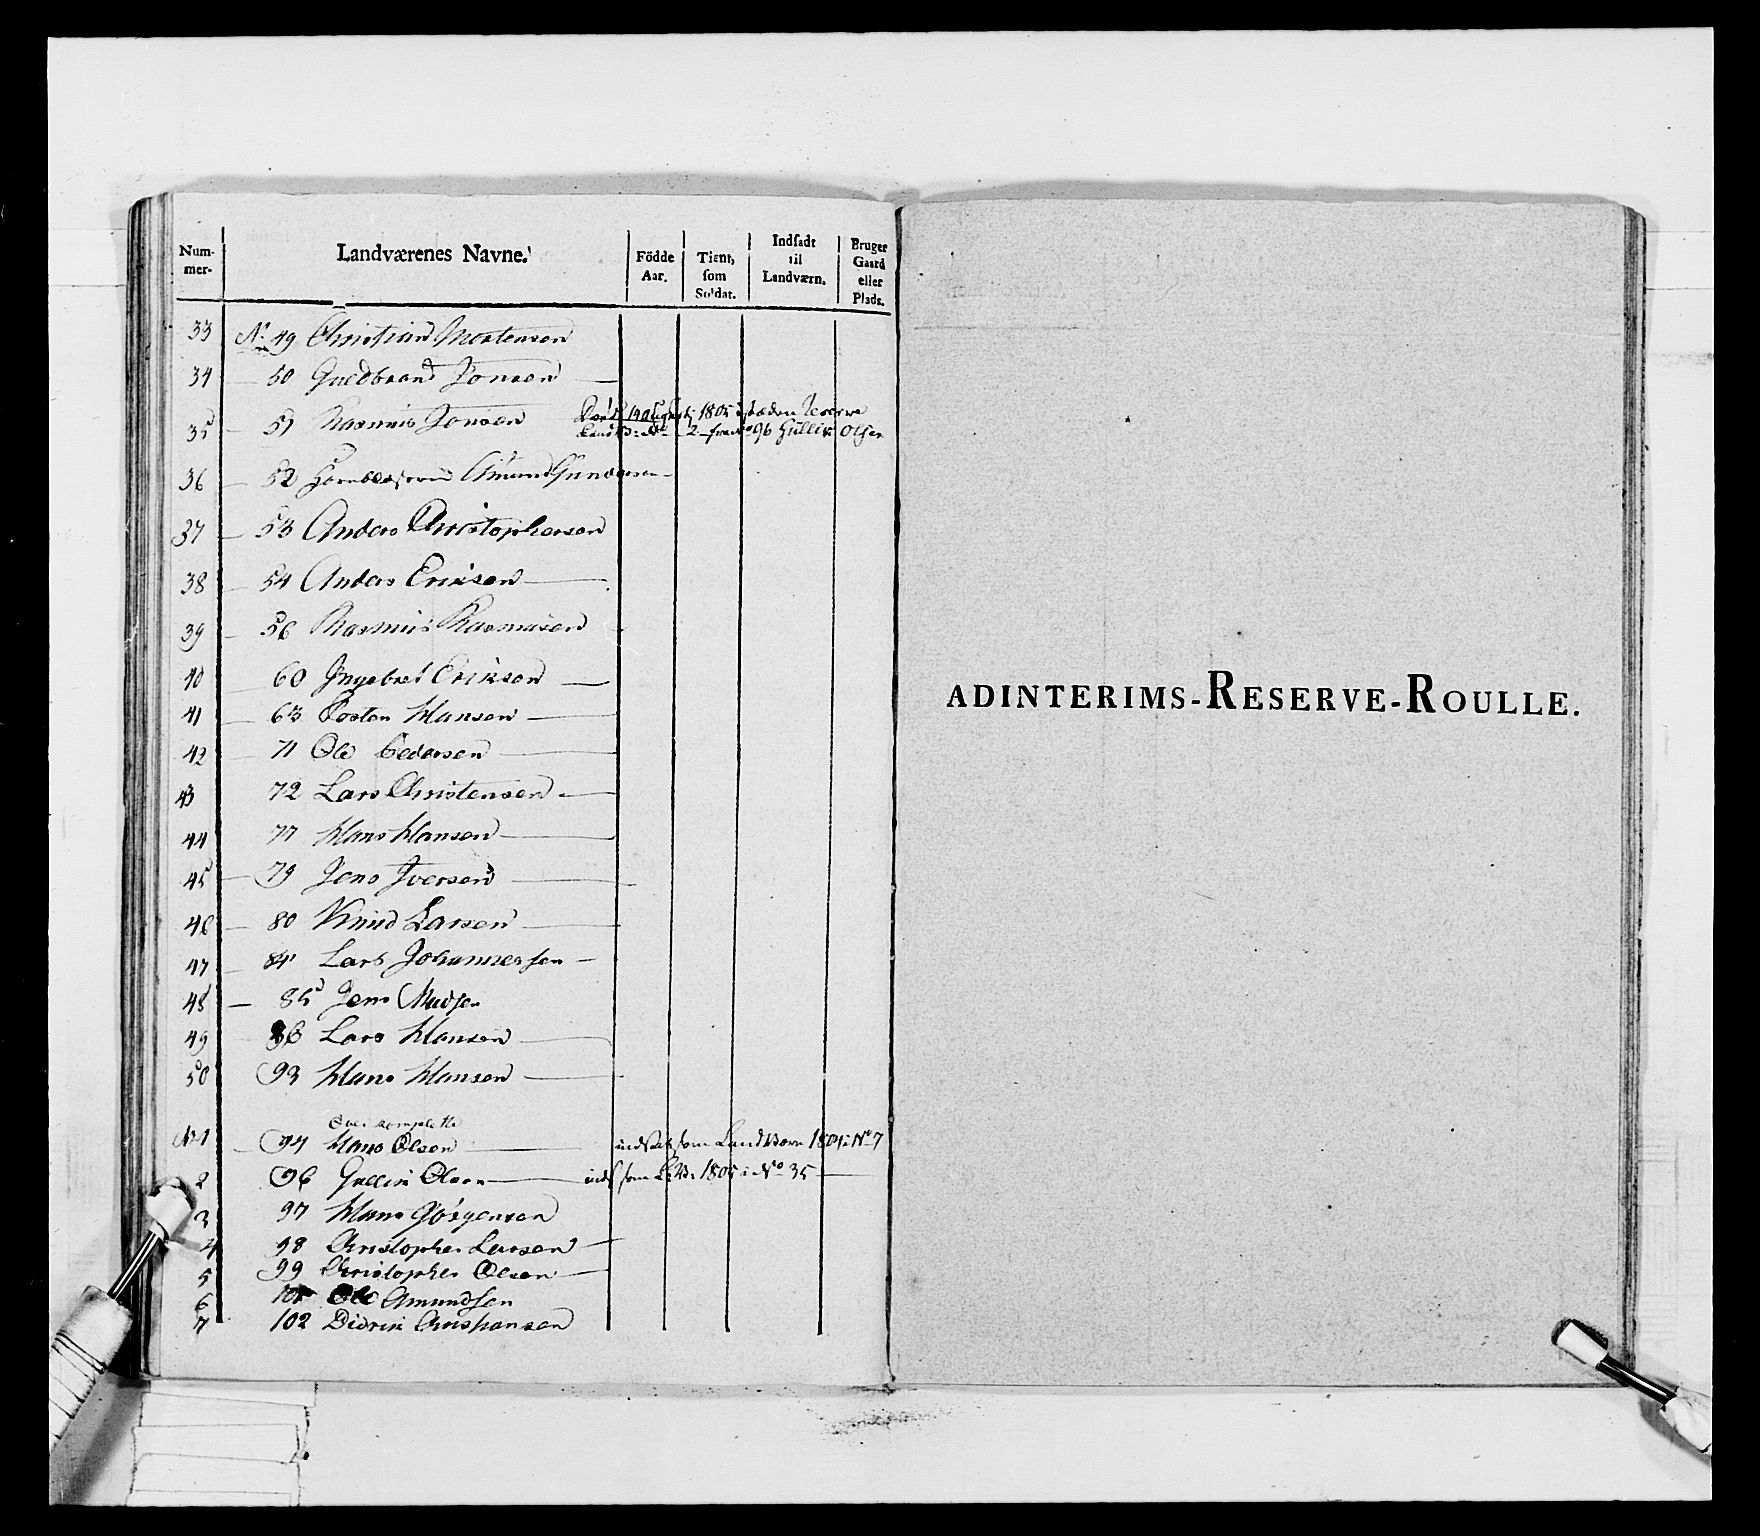 Num-
mer-
Landværenes Navne.
Födde
Aar.
Tient,
som
Soldat.
Indsadt
til
Landværn.
Bruger
Gaard
eller
Plads.
33 No 49 Christian Mortensen
34 50 Guldbrand Jonsen
35 51 Rasmus Jonsen 1805
96 Gullik Olsen
36 52 Amund Gundersen
37 53 Anders Christophersen
38 54 Anders Eriksen
39 56 Rasmus Rasmusen
40 60 Ingebret Eriksen
41 63 Hansen
42 71 Ole Pedersen
43 72 Lars Christensen
44 77 Hans Hansen
45 79 Jens Iversen
46 80 Knud Larsen
47 84 Lars Johannessen
48 85 Jens
49 86 Lars Hansen
50 93 Hans Hansen
Over komplette
No 1 94 Hans Olsen indsat som Landværn 1804 i No 7
2 96 Gullik Olsen inds som L:V: 1805 i No 35
3 97 Hans Jörgensen
4 98 Christopher Larsen
5 99 Christopher Olsen
6 101 Ole Amundsen
7 102 Didrik Christiansen
ADINTERIMS-RESERVE-ROULLE.